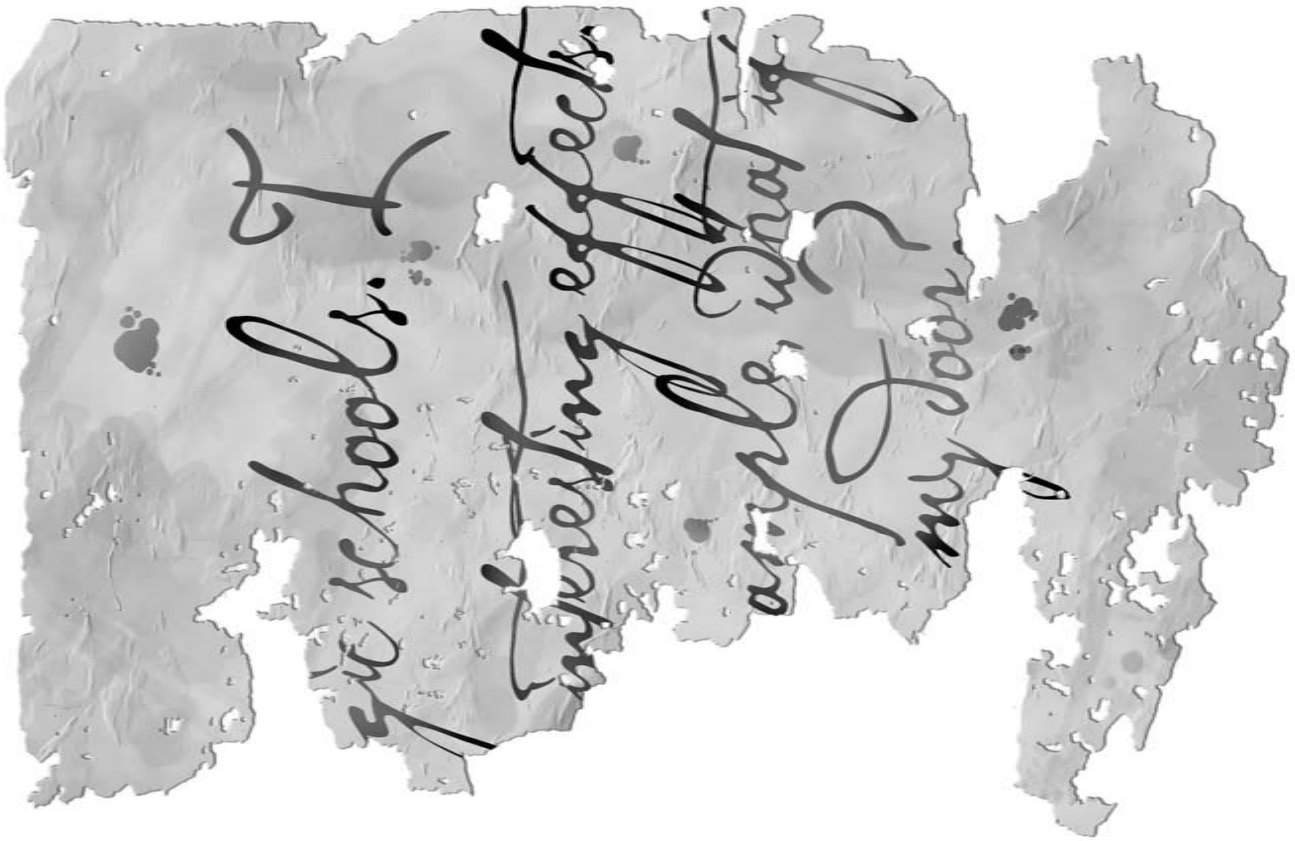 gic schools. I
interesting effects
ample, what if
my door